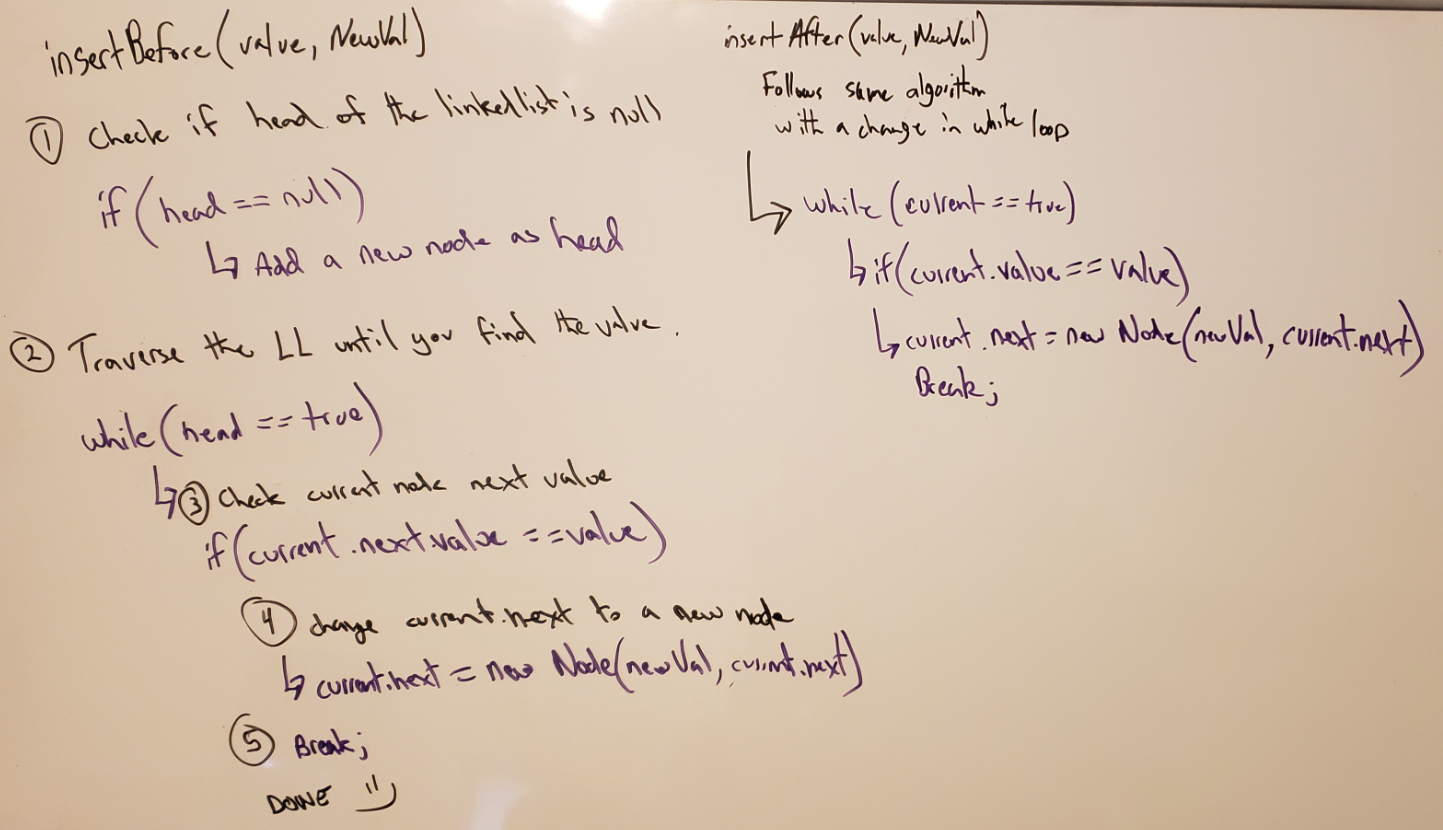 insertBefore(value, NewVal)
① Check if head of the linkedlist is null
if (head == null)
↳ Add a new node as head
② Traverse the LL until you find the value.
while (head == true)
↳ ③ Check current node next value
if (current.next.value == value)
④ change current.next to a new node
↳ current.next = new Node(newVal, current.next)
⑤ Break;
DONE
insertAfter(value, NewVal)
Follows same algorithm
with a change in while loop
↳ while (current == true)
↳ if(current.value == value)
↳ current.next = new Node(newVal, current.next)
Break;